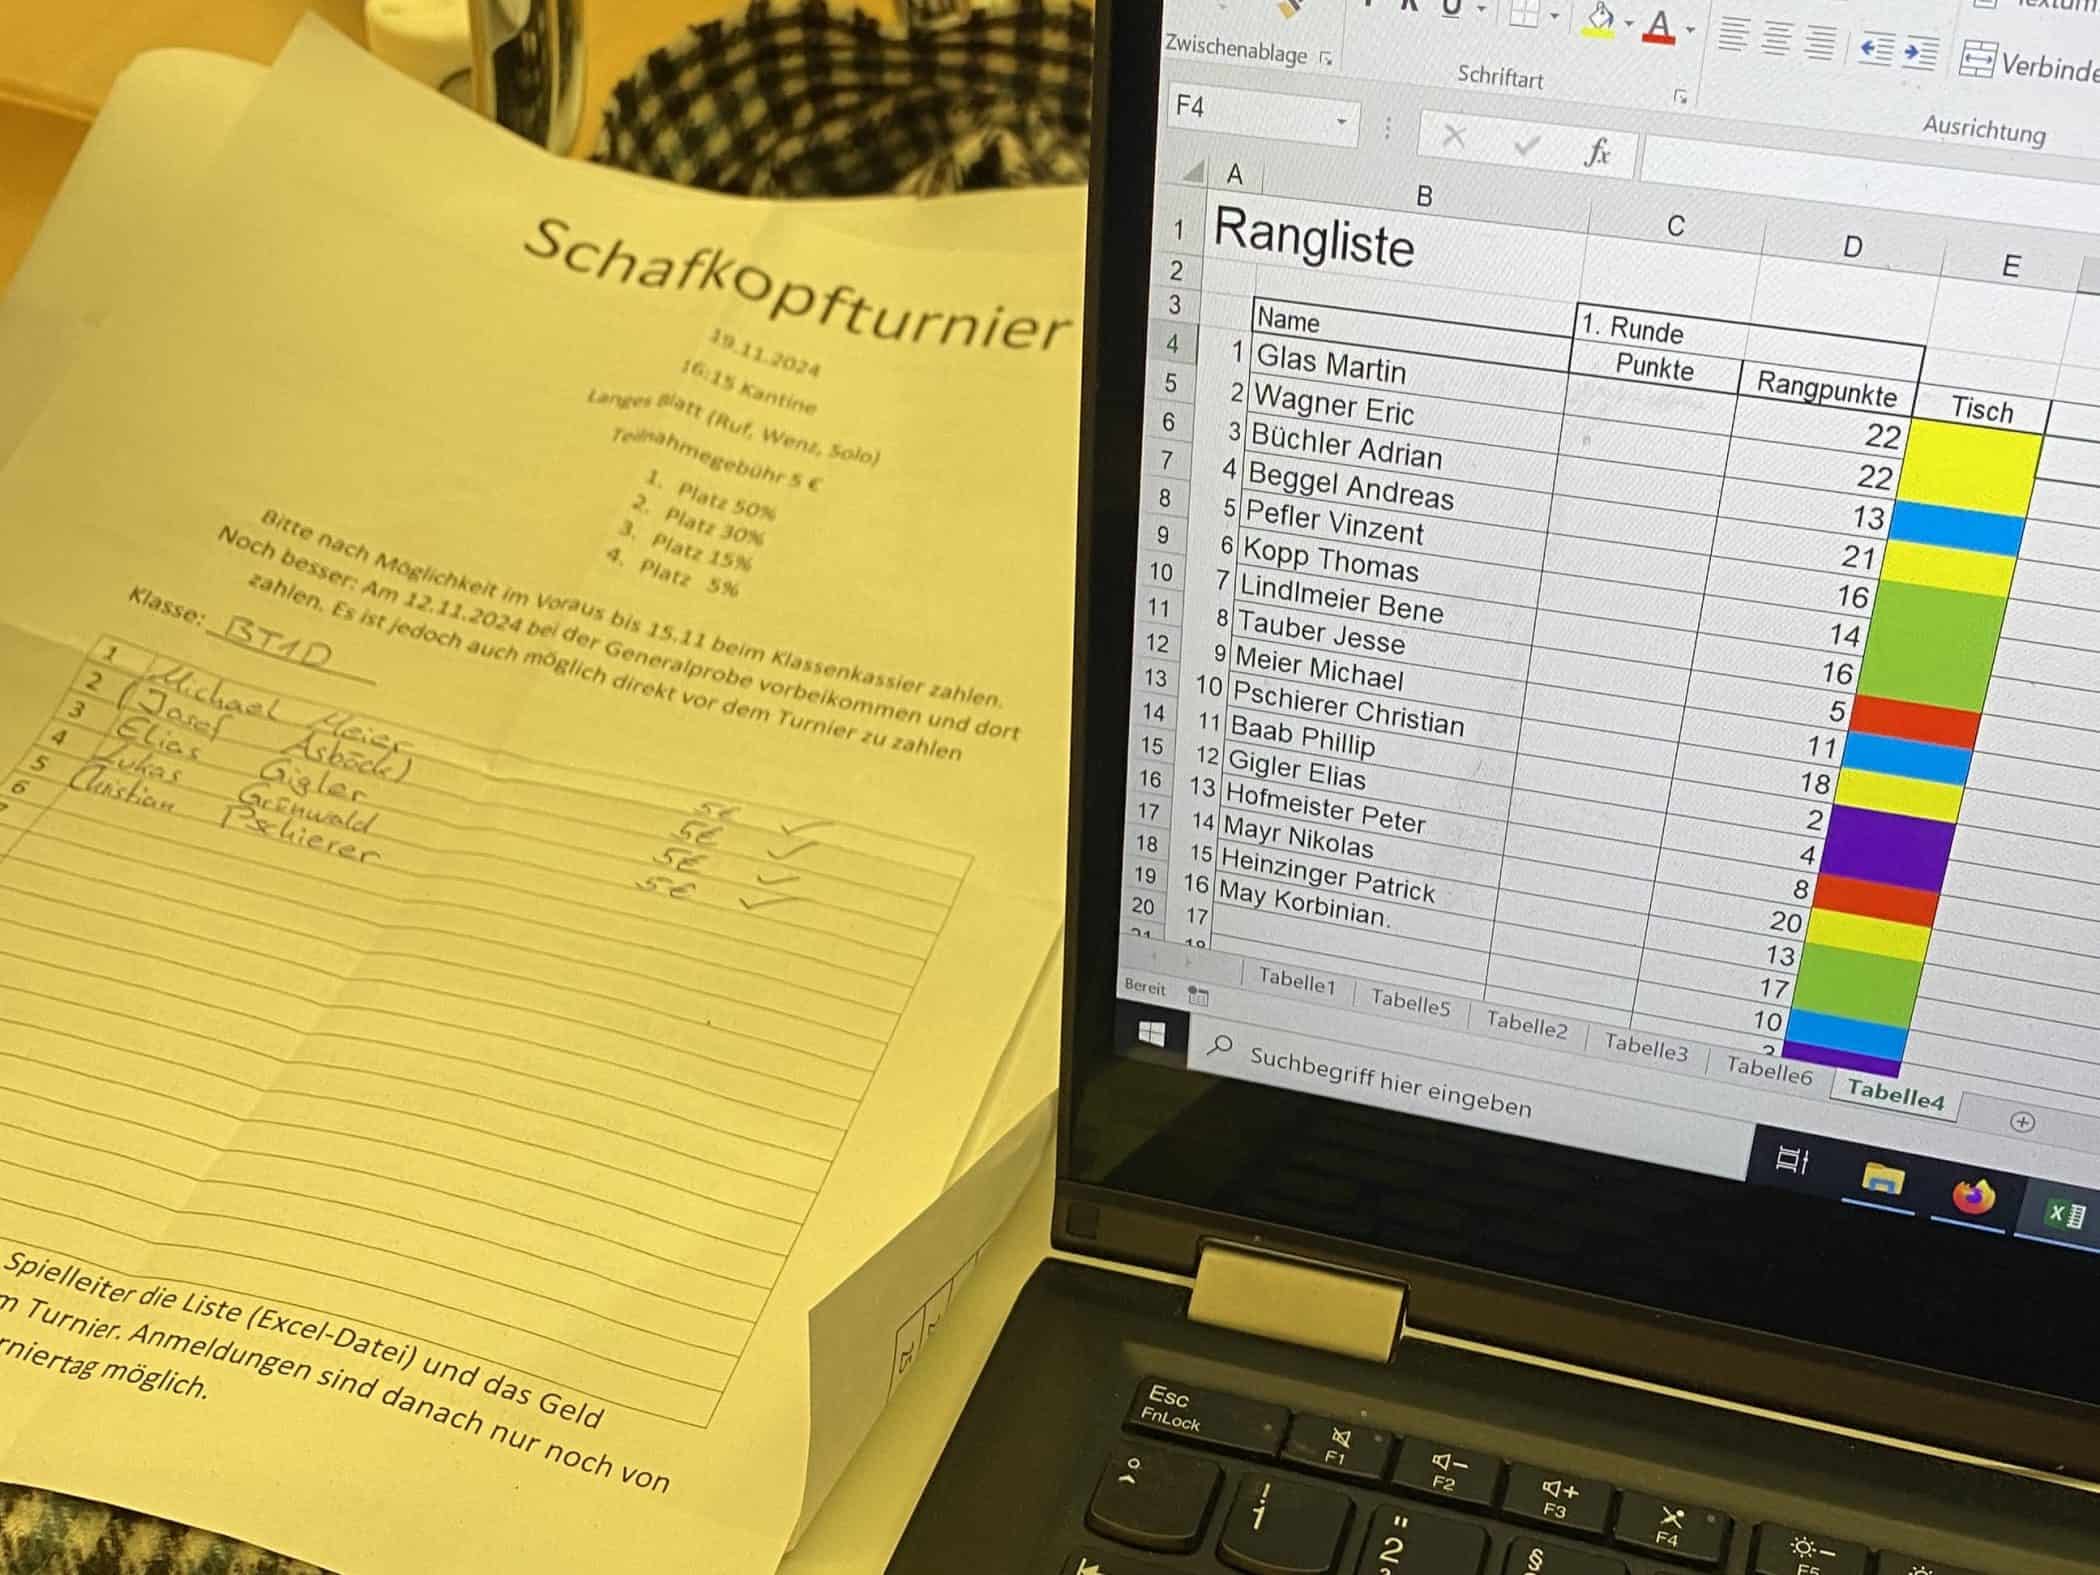 Schafkopfturnier
19.11.2024
16:15 Kantine
Langes Blatt (Ruf, Wenz, Solo)
Teilnahmegebühr 5 €
1. Platz 50%
2. Platz 30%
3. Platz 15%
4. Platz 5%
Bitte nach Möglichkeit im Voraus bis 15.11 beim Klassenkassier zahlen.
Noch besser: Am 12.11.2024 bei der Generalprobe vorbeikommen und dort
zahlen. Es ist jedoch auch möglich direkt vor dem Turnier zu zahlen
Klasse: BT1D
1 Michael Meier 5€ ✓
2 (Josef Asböck) 5€ ✓
3 Elias Gigler 5€ ✓
4 Lukas Grünwald 5€ ✓
5 Christian Pschierer
6
7
Spielleiter die Liste (Excel-Datei) und das Geld
m Turnier. Anmeldungen sind danach nur noch von
rniertag möglich.
Zwischenablage Schriftart Ausrichtung
Verbinde
F4 fx
A B C D E
1 Rangliste
2
3 Name 1. Runde
4 1 Glas Martin Punkte Rangpunkte Tisch
5 2 Wagner Eric 22
6 3 Büchler Adrian 22
7 4 Beggel Andreas 13
8 5 Pefler Vinzent 21
9 6 Kopp Thomas 16
10 7 Lindlmeier Bene 14
11 8 Tauber Jesse 16
12 9 Meier Michael 5
13 10 Pschierer Christian 11
14 11 Baab Phillip 18
15 12 Gigler Elias 2
16 13 Hofmeister Peter 4
17 14 Mayr Nikolas 8
18 15 Heinzinger Patrick 20
19 16 May Korbinian. 13
20 17 17
21 18 10
Tabelle1 Tabelle5 Tabelle2 Tabelle3 Tabelle6 Tabelle4
Bereit
Suchbegriff hier eingeben
Esc
FnLock
F1 F2 F3 F4 F5
° ^ ! 1 " 2 §